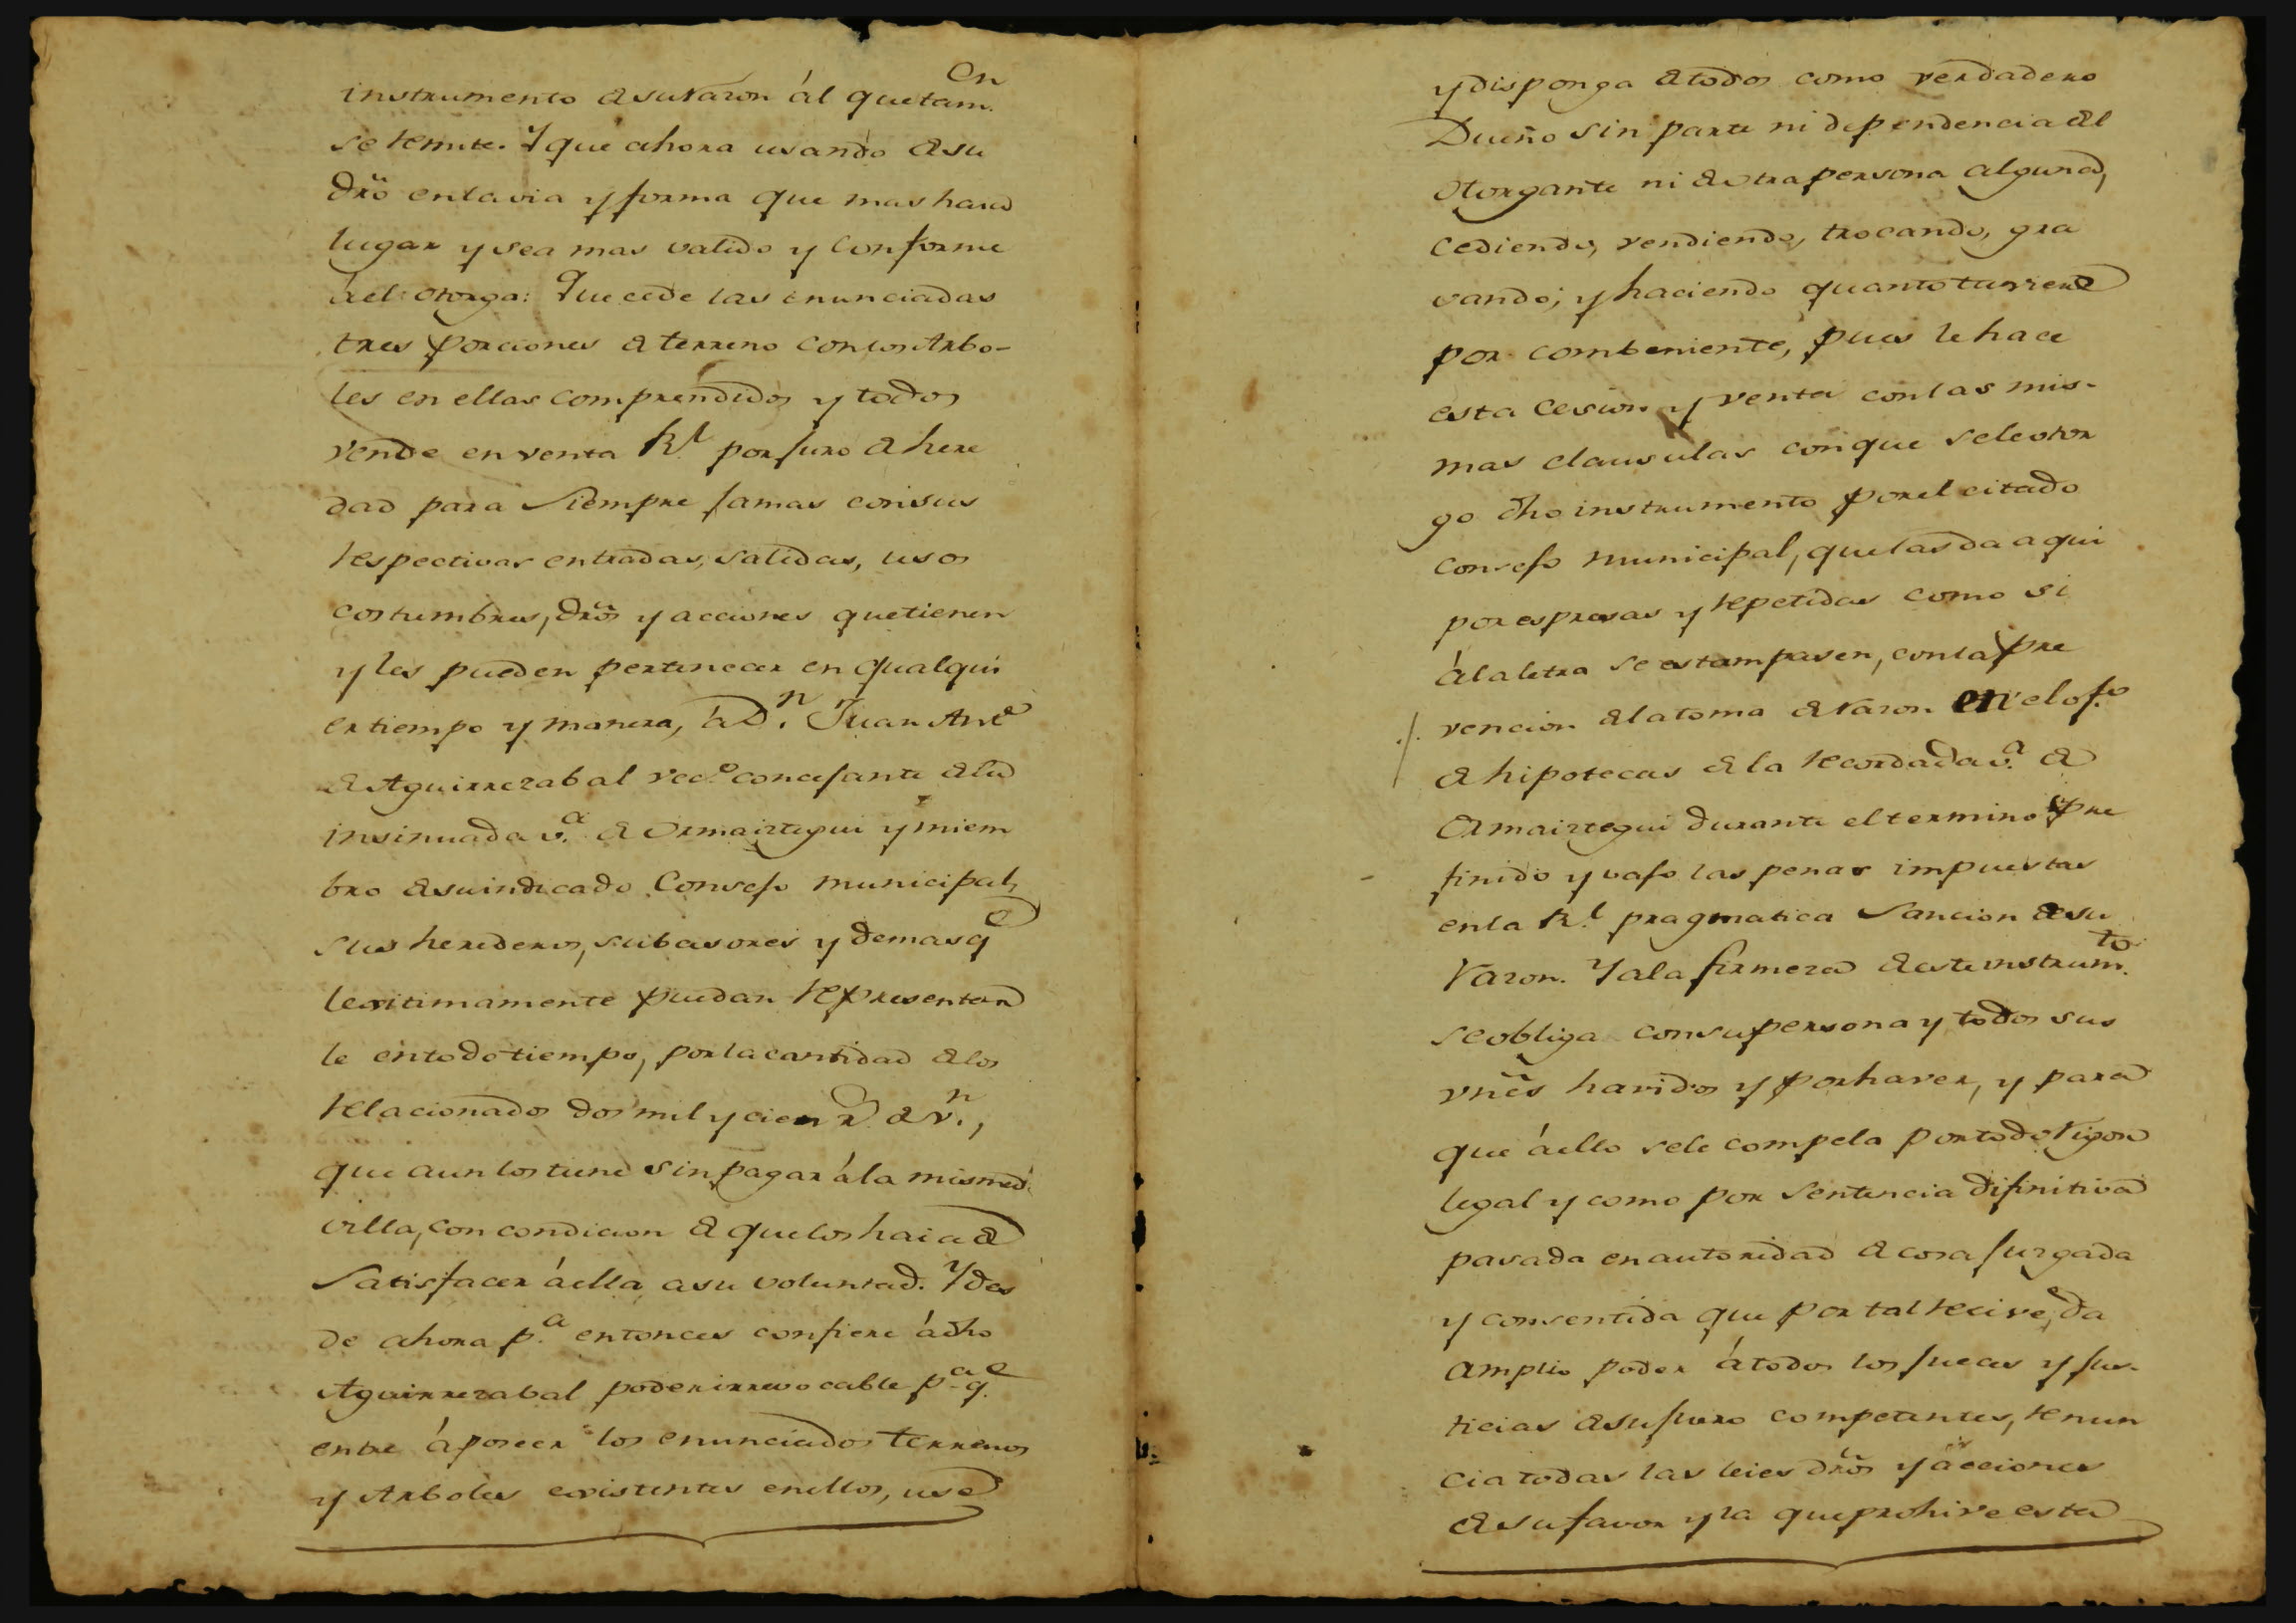 instrumento de su razon ál que tam.en
se remite. Y que ahora usando de su
dr̃o en la via y forma que mas haia
lugar y sea mas valido y conforme
á el otorga: Que cede las enunciadas
tres porciones de terreno con los Arbo-
les en ellas comprendidos y todos
vende en venta R.l por juro de here
dad para siempre jamas con sus
respectivas entradas, salidas, usos
costumbres, dr̃os y acciones que tienen
y les pueden pertenecer en qualqui
er tiempo y manera, á D.n Juan Ant.o
de Aguirrezabal vec.o concejante de la
insinuada v.a de Ormaiztegui y miem
bro de su indicado Consejo municipal,
sus herederos, subcesores y demas q.e
legitimamente puedan representar
le en todo tiempo, por la cantidad de los
relacionados dos mil y cien r.s de v.n,
que aun los tiene sin pagar á la misma
villa, con condicion de que los haia de
satisfacer á ella a su voluntad. Y des
de ahora p.a entonces confiere á dho
Aguirrezabal poder irrevocable p.a q.e
entre á poseer los enunciados terrenos
y Arboles existentes en ellos, use
y disponga de todos como verdadero
Dueño sin parte ni dependencia del
otorgante ni de otra persona alguna,
cediendo, vendiendo, trocando, gra
vando; y haciendo quanto tuviere
por combeniente, pues le hace
esta cesion y venta con las mis-
mas clausulas con que se le otor
go dho instrumento por el citado
consejo municipal, que las da aqui
por espresas y repetidas como si
á la letra se estampasen, con la pre
vencion de la toma de razon en el of.o
de hipotecas de la recordada v.a de
Ormaiztegui durante el termino pre
finido y vajo las penas impuestas
en la R.l pragmatica sancion de su
razon. Y a la firmeza de este instrum.to
se obliga con su persona y todos sus
vñes havidos y por haver, y para
que á ello se le compela por todo rigor
legal y como por sentencia difinitiva
pasada en autoridad de cosa juzgada
y consentida que por tal recive, da
amplio poder á todos los jueces y jus-
ticias de su fuero competentes, renun
cia todas las leies dr̃os y acciones
de su favor y la que prohive esta